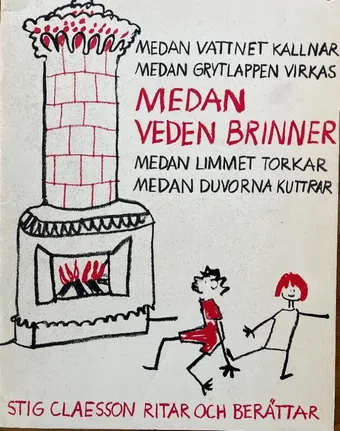 MEDAN VATTNET KALLNAR
MEDAN GRYTLAPPEN VIRKAS
MEDAN
VEDEN BRINNER
MEDAN LIMMET TORKAR
MEDAN DUVORNA KUTTRAR
STIG CLAESSON RITAR OCH BERÄTTAR